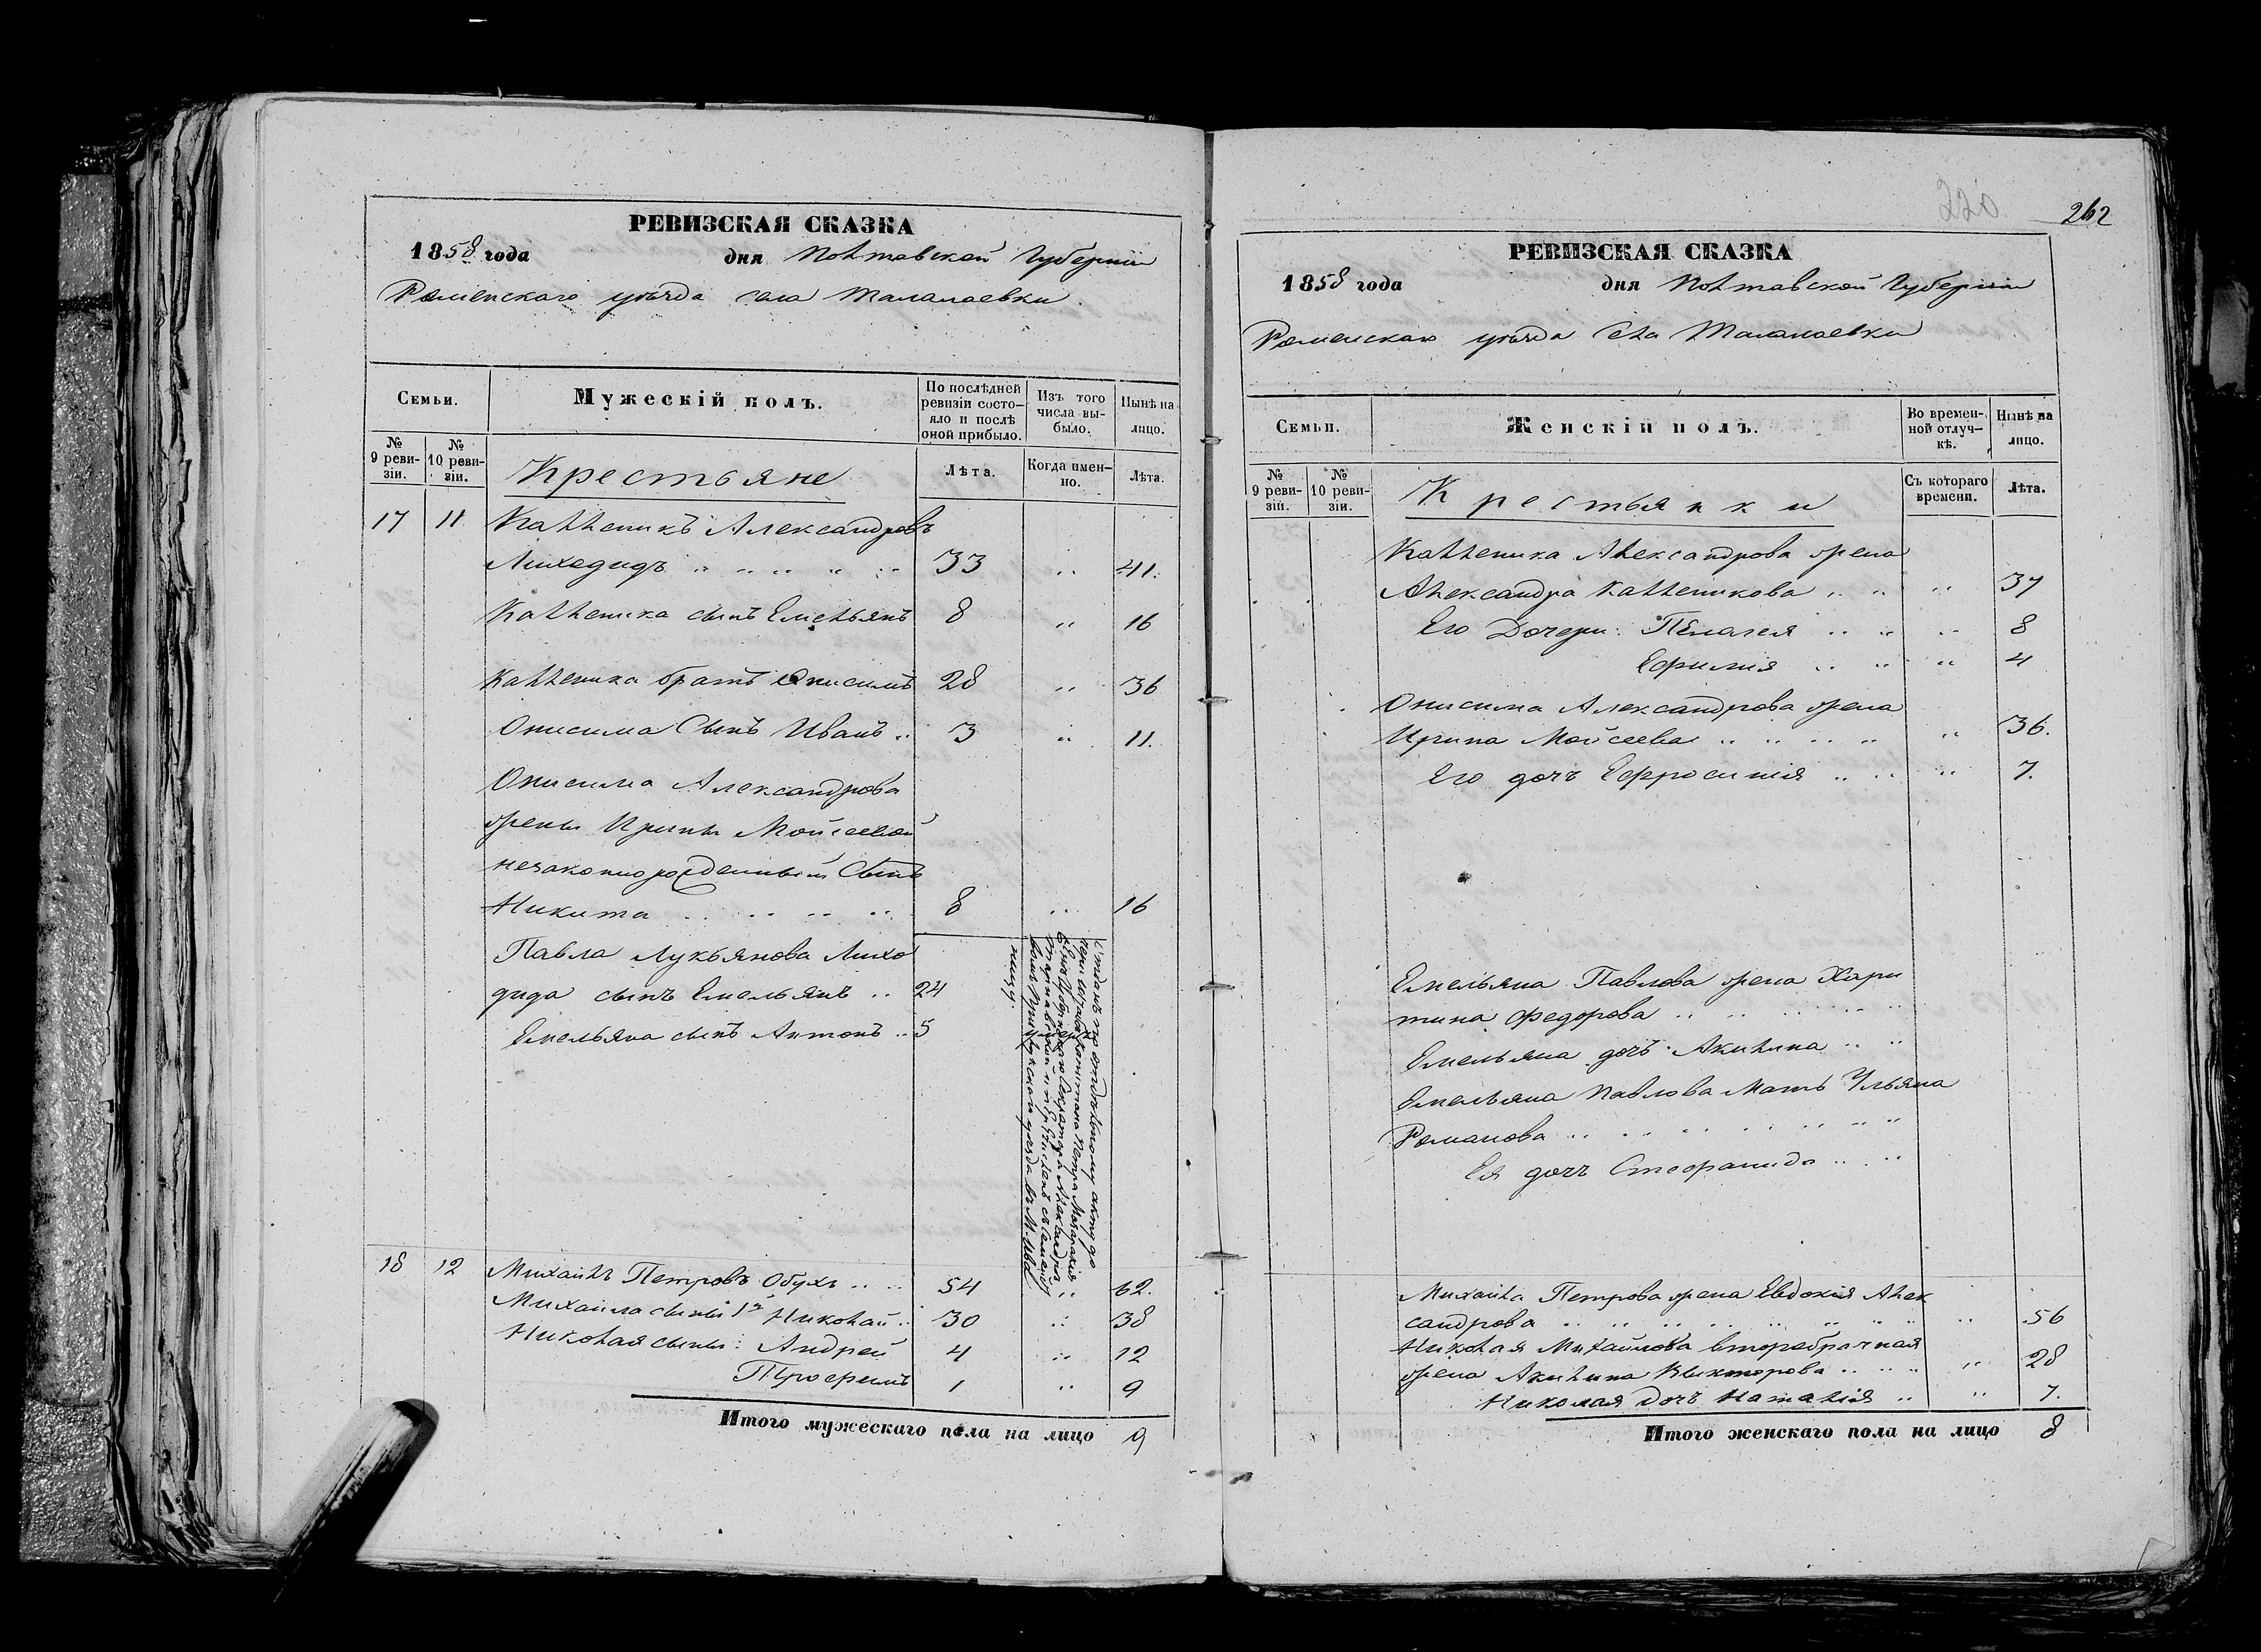 РЕВИЗСКАЯ СКАЗКА
1858 года дня Полтавской Губерніи
Роменскаго уѣзда села Талалаевки
Семьи. Мужескій полъ. По послѣдней ревизіи состояло и послѣ оной прибыло. Изъ того числа выбыло. Нынѣ на лицо.
№ 9 ревизіи. № 10 ревизіи. Крестьяне Лѣта. Когда именно. Лѣта.
17 11 Калленикъ Александровъ
Лиходидъ 33 41.
Калленика сынъ Емельянъ 8 16
Калленика братъ Онисимъ 28 36
Онисима Сынъ Иванъ 3 11.
Онисима Александрова
жены Ирины Мойсеевой
незаконнорожденный Сынъ
Никита 8 16
Павла Лукьянова Лихо
дида сынъ Емельянъ 24
Емельяна сынъ Антонъ 5
18 12 Михаилъ Петровъ Обухъ 54 62.
Михаила сыны 1й Николай 30 38
Николая сыны: Андрей 4 12
Трофимъ 1 9
Итого мужескаго пола на лицо 9
220 262
РЕВИЗСКАЯ СКАЗКА
1858 года дня Полтавской Губерніи
Роменскаго уѣзда Села Талалаевки
Семьи. Женскій полъ. Во временной отлучкѣ. Нынѣ на лицо.
№ 9 ревизіи. № 10 ревизіи. Крестьянки Съ котораго времени. Лѣта.
Калленика Александрова жена
Александра Калленикова 37
Его Дочери: Пелагея 8
Ефимія 4
Онисима Александрова жена
Ирина Мойсеева 36.
Его дочь Ефросинія 7.
Емельяна Павлова жена Хари
тина Федорова
Емельяна дочь Акилина
Емельяна Павлова Мать Ульяна
Романова
Ея дочь Стефанида
Михаила Петрова жена Евдокія Алек
сандрова 56
Николая Михайлова второбрачная
жена Акилина Викторова 28
Николая Дочь Наталія 7.
Итого женскаго пола на лицо 8